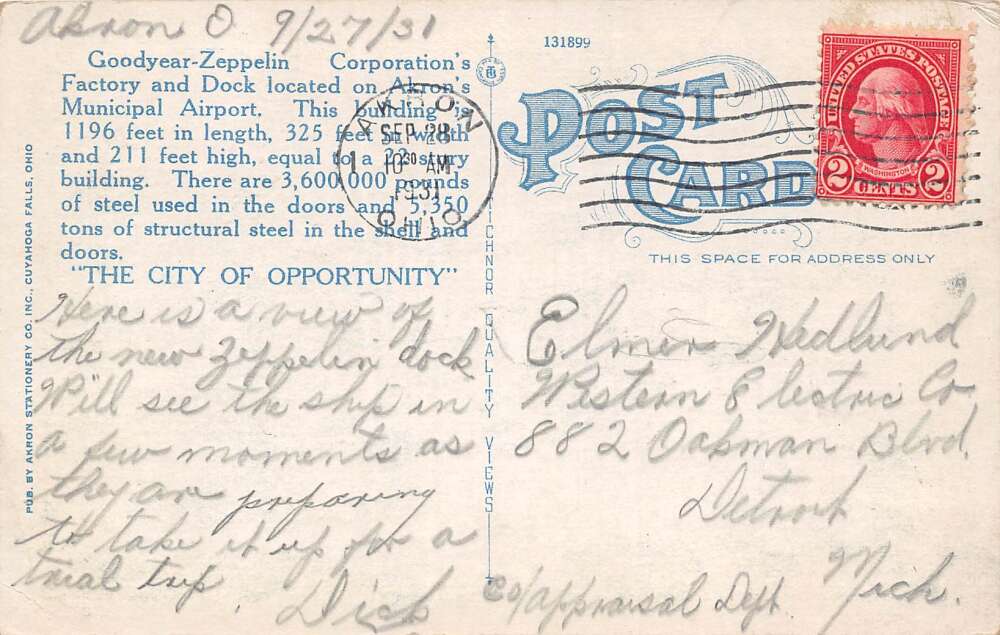 Akron O 9/27/31
Goodyear-Zeppelin Corporation's
Factory and Dock located on Akron's
Municipal Airport. This building is
1196 feet in length, 325 feet in width
and 211 feet high, equal to a 22 story
building. There are 3,600,000 pounds
of steel used in the doors and 5,350
tons of structural steel in the shell and
doors.
"THE CITY OF OPPORTUNITY"
Here is a view of
the new Zeppelin dock
Will see the ship in
a few moments as
they are preparing
to take it up for a
trial trip
Dick
PUB. BY AKRON STATIONERY CO. INC., CUYAHOGA FALLS, OHIO
TICHNOR QUALITY VIEWS
131899
AKRON
SEP 28
10 30 AM
1931
OHIO
1
POST
CARD
UNITED STATES POSTAGE
WASHINGTON
2 CENTS 2
THIS SPACE FOR ADDRESS ONLY
Elmer Hedlund
Western Electric Co
882 Oakman Blvd.
Detroit
Mich.
c/o Appraisal Dept